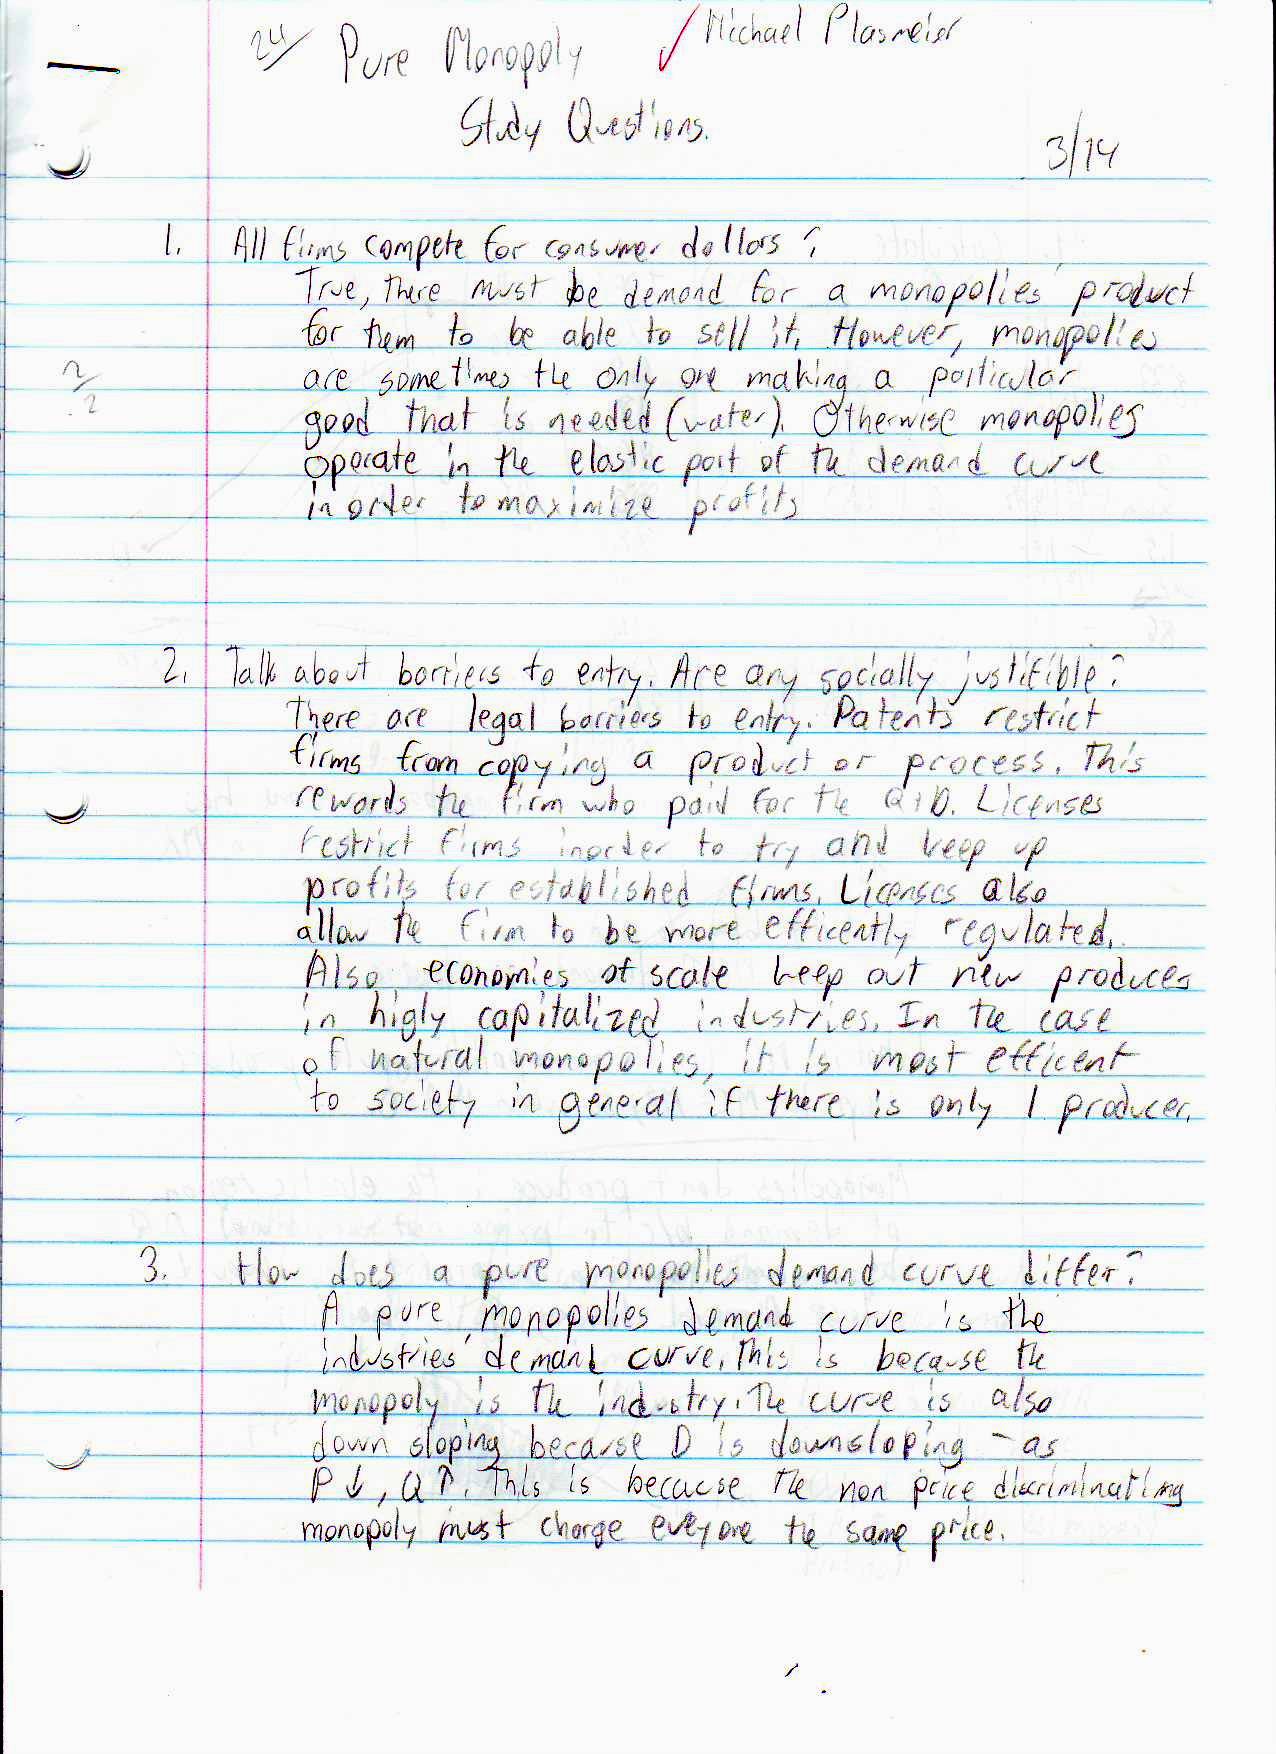 24/ Pure Monopoly ✓ Michael Plasmeier
Study Questions.
3/14
1. All firms compete for consumer dollars?
True, there must be demand for a monopolies' product
for them to be able to sell it. However, monopolies
2/2
are sometimes the only one making a particular
good that is needed (water). Otherwise monopolies
operate in the elastic part of the demand curve
in order to maximize profits
2. Talk about barriers to entry. Are any socially justifible?
There are legal barriers to entry. Patents restrict
firms from copying a product or process. This
rewards the firm who paid for the R+D. Licenses
restrict firms inorder to try and keep up
profits for established firms. Licenses also
allow the firm to be more efficently regulated.
Also, economies of scale keep out new produces
in higly capitalized industries. In the case
of natural monopolies, it is most efficent
to society in general if there is only 1 producer.
3. How does a pure monopolies demand curve differ?
A pure monopolies demand curve is the
industries' demand curve. This is because the
monopoly is the industry. The curve is also
down sloping because D is downsloping - as
P ↓, Q ↑. This is because the non price discriminating
monopoly must charge eveyone the same price.